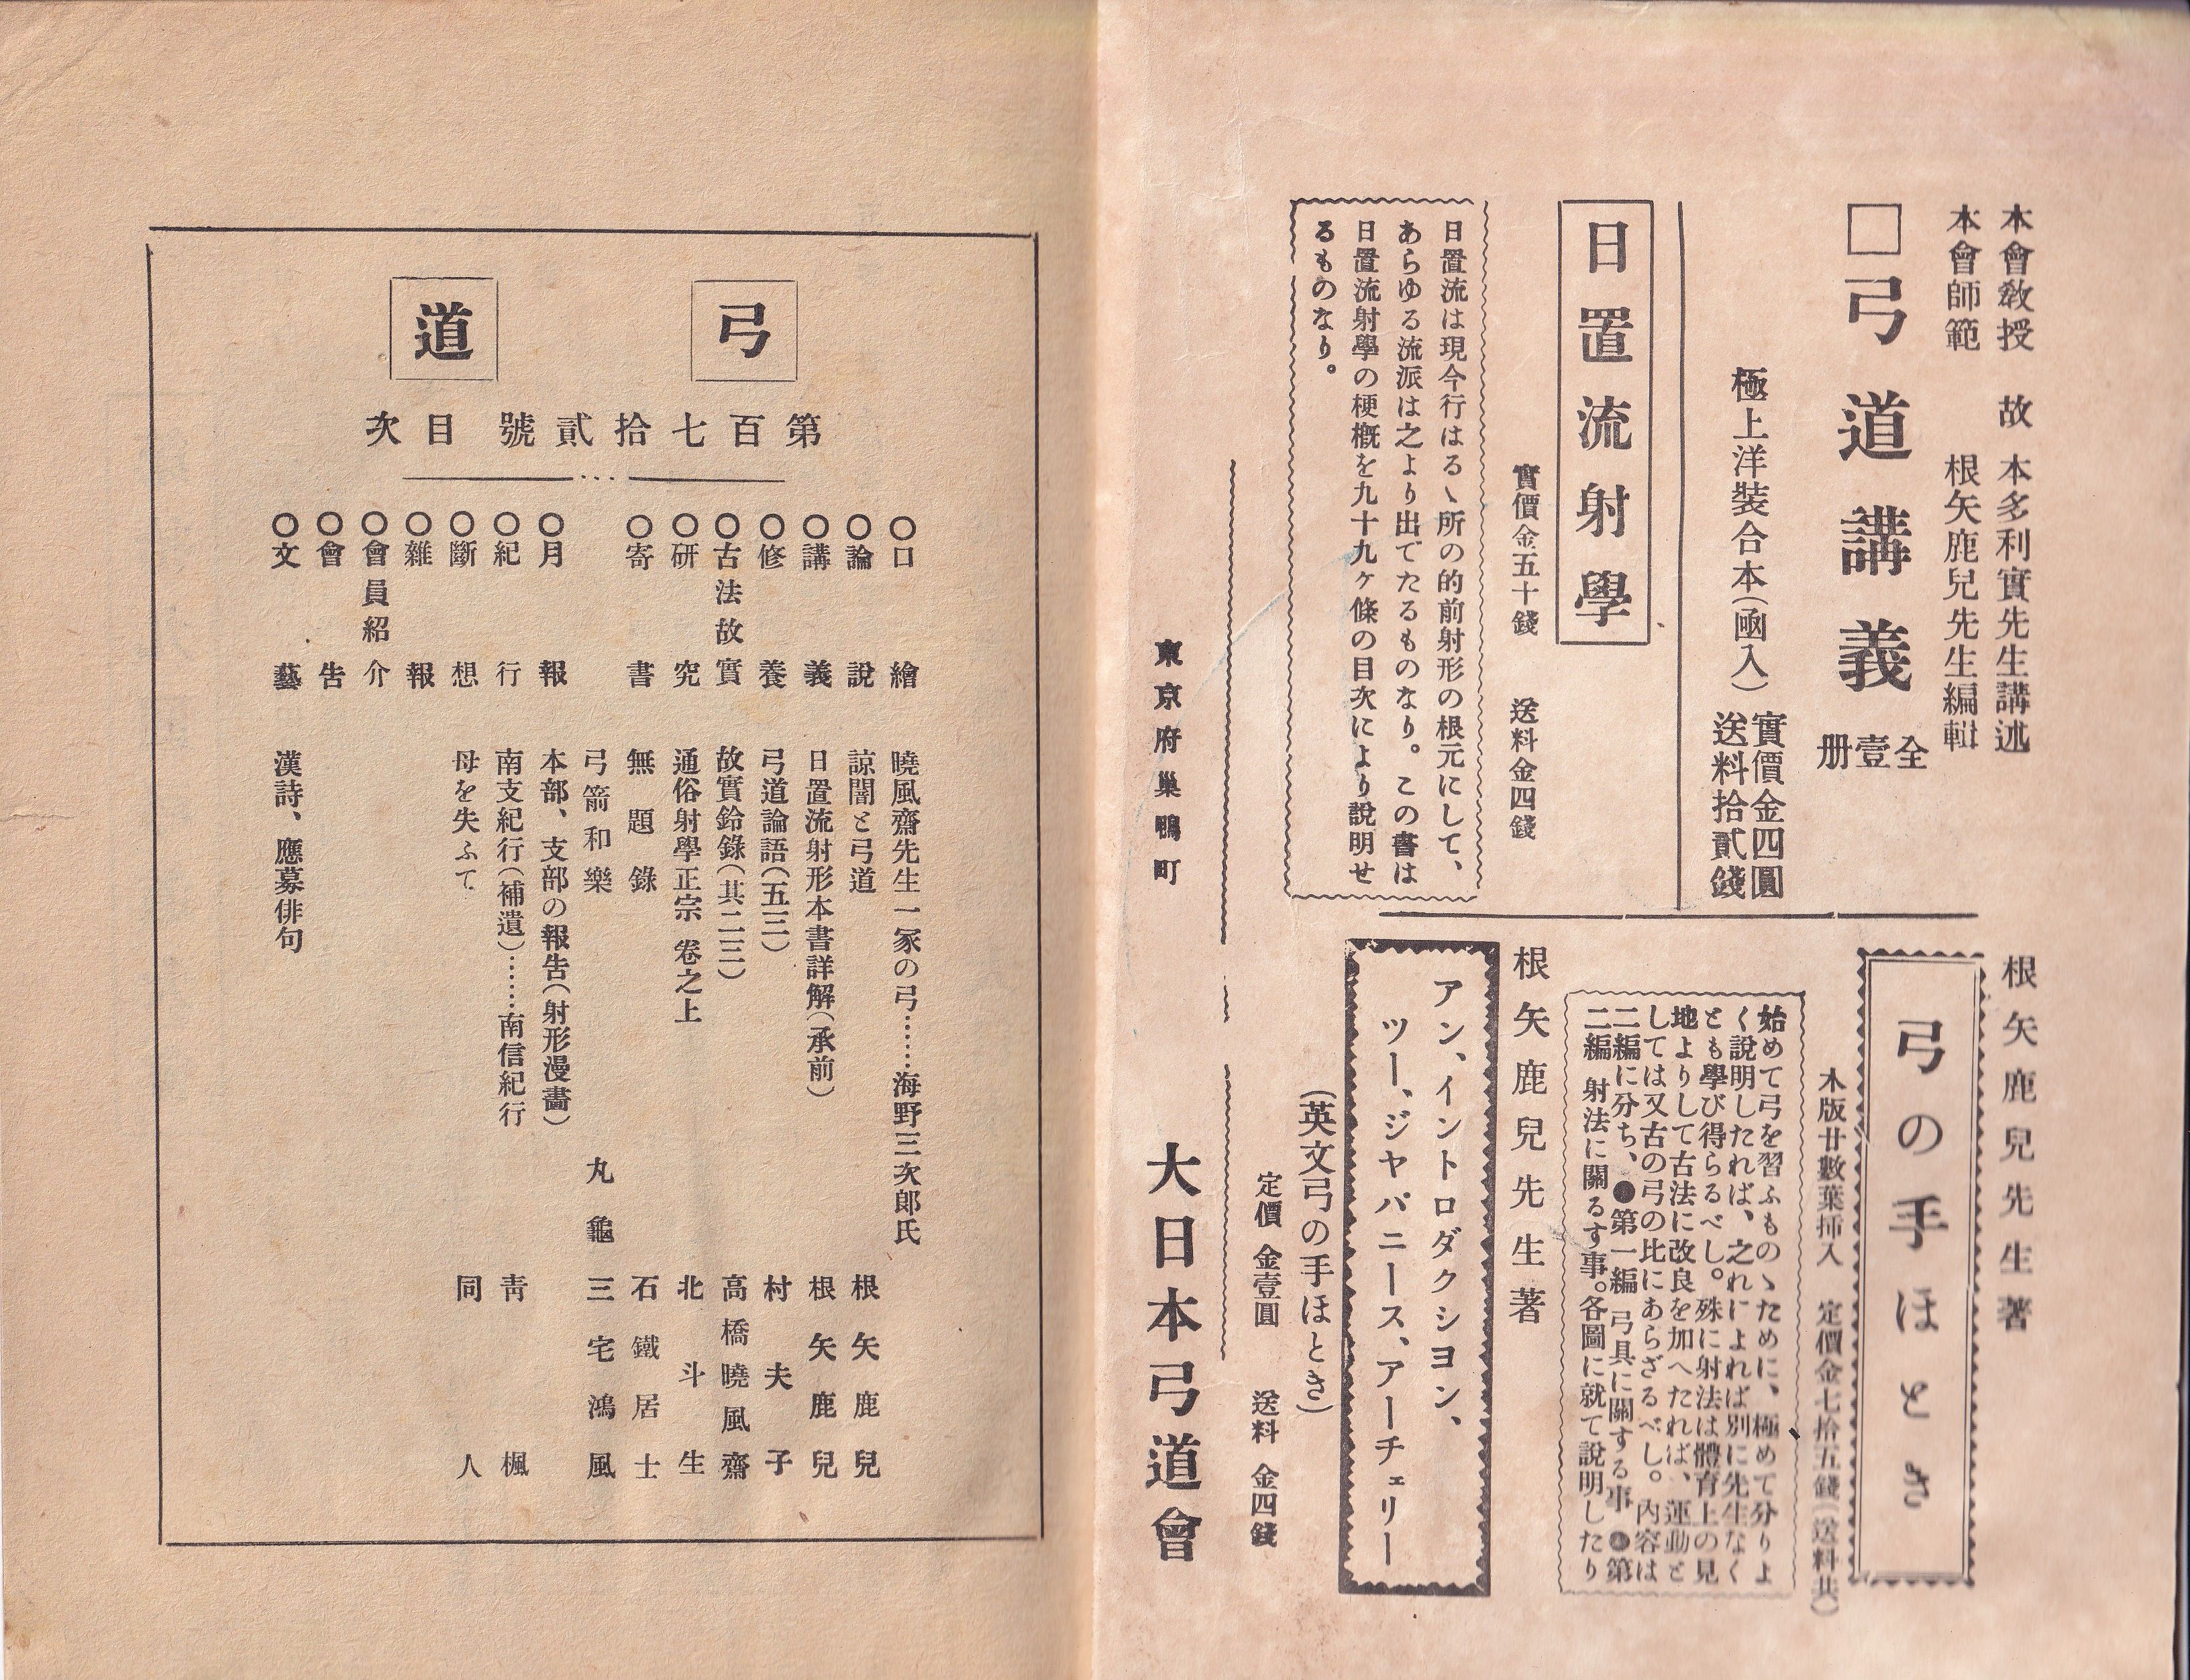 本會教授　故　本多利實先生講述
本會師範　根矢鹿兒先生編輯
□弓道講義
全壹册
極上洋裝合本（凾入）
實價金四圓
送料拾貳錢
日置流射學
實價金五十錢　送料金四錢
日置流は現今行はるゝ所の的前射形の根元にして、
あらゆる流派は之より出でたるものなり。この書は
日置流射學の梗概を九十九ヶ條の目次により說明せ
るものなり。
根矢鹿兒先生著
弓の手ほとき
木版廿數葉挿入　定價金七拾五錢（送料共）
始めて弓を習ふものゝために、極めて分りよ
く說明したれば、之れによれば別に先生なく
とも學び得らるべし。殊に射法は體育上の見
地よりして古法に改良を加へたれば、運動と
しては又古の弓の比にあらざるべし。内容は
二編に分ち、●第一編 弓具に關する事 ●第
二編 射法に關るす事。各圖に就て說明したり
根矢鹿兒先生著
アン、イントロダクシヨン、
ツー、ジヤパニース、アーチェリー
（英文弓の手ほとき）
定價 金壹圓　送料 金四錢
東京府巢鴨町
大日本弓道會
弓道
第百七拾貳號目次
〇口繪　曉風齋先生一家の弓……海野三次郎氏
〇論說　諒闇と弓道　根矢鹿兒
〇講義　日置流射形本書詳解（承前）　根矢鹿兒
〇修養　弓道論語（五三）　村夫子
〇古法故實　故實鈴錄（其二三）　高橋曉風齋
〇研究　通俗射學正宗 卷之上　北斗生
〇寄書　無題錄　石鐵居士
弓箭和樂　丸龜　三宅鴻風
〇月報　本部、支部の報告（射形漫畵）
〇紀行　南支紀行（補遺）……南信紀行　靑楓
〇斷想　母を失ふて　同人
〇雜報
〇會員紹介
〇會告
〇文藝　漢詩、應募俳句